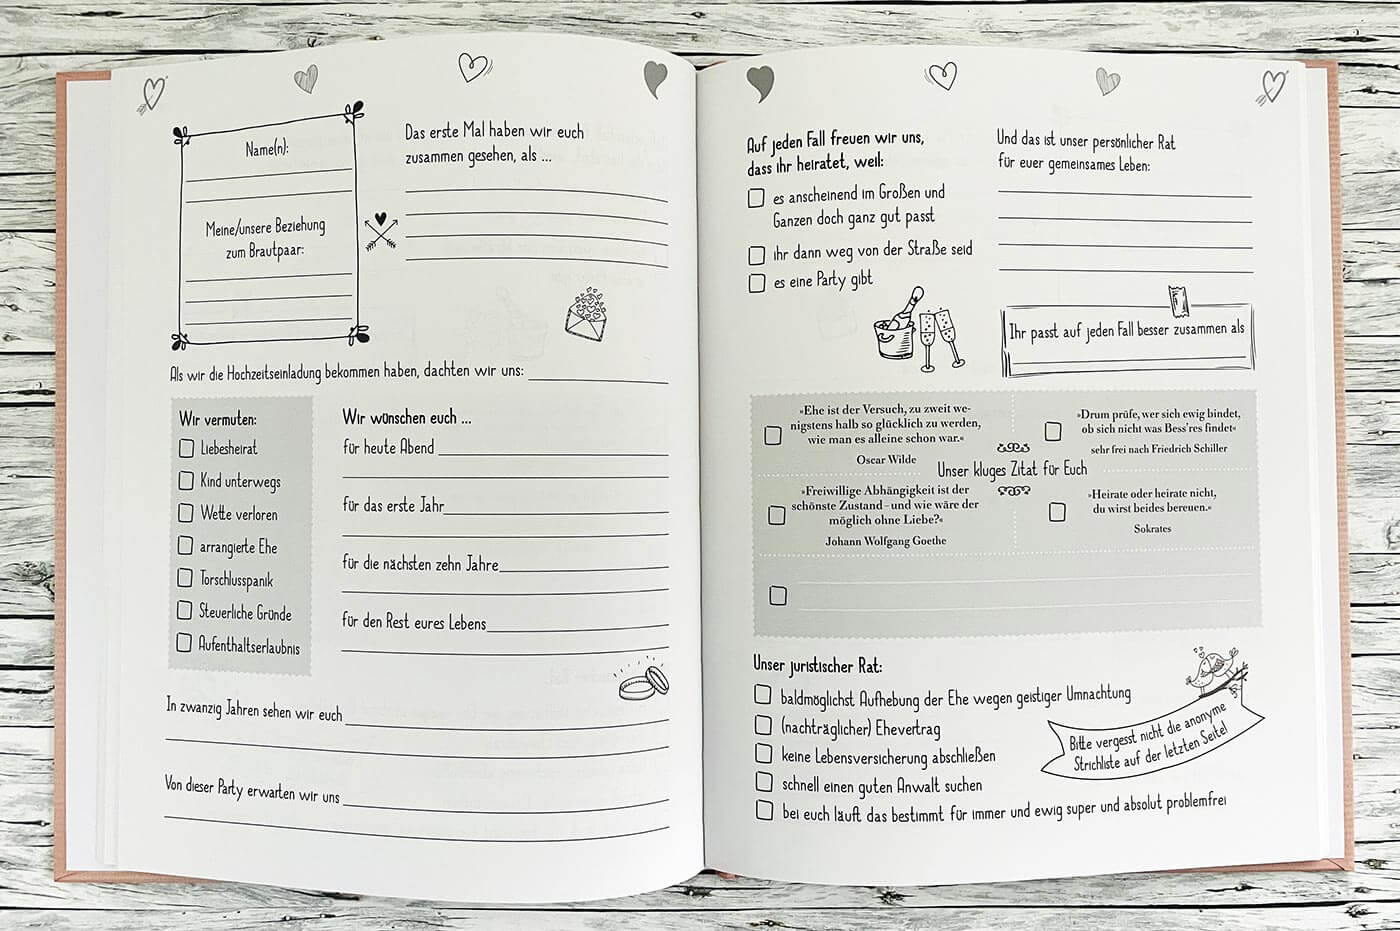 Name(n):
Meine/unsere Beziehung
zum Brautpaar:
Das erste Mal haben wir euch
zusammen gesehen, als ...
Als wir die Hochzeitseinladung bekommen haben, dachten wir uns:
Wir vermuten:
Liebesheirat
Kind unterwegs
Wette verloren
arrangierte Ehe
Torschlusspanik
Steuerliche Gründe
Aufenthaltserlaubnis
Wir wünschen euch ...
für heute Abend
für das erste Jahr
für die nächsten zehn Jahre
für den Rest eures Lebens
In zwanzig Jahren sehen wir euch
Von dieser Party erwarten wir uns
Auf jeden Fall freuen wir uns,
dass ihr heiratet, weil:
es anscheinend im Großen und
Ganzen doch ganz gut passt
ihr dann weg von der Straße seid
es eine Party gibt
Und das ist unser persönlicher Rat
für euer gemeinsames Leben:
Ihr passt auf jeden Fall besser zusammen als
»Ehe ist der Versuch, zu zweit we-
nigstens halb so glücklich zu werden,
wie man es alleine schon war.«
Oscar Wilde
»Drum prüfe, wer sich ewig bindet,
ob sich nicht was Bess'res findet«
sehr frei nach Friedrich Schiller
Unser kluges Zitat für Euch
»Freiwillige Abhängigkeit ist der
schönste Zustand – und wie wäre der
möglich ohne Liebe?«
Johann Wolfgang Goethe
»Heirate oder heirate nicht,
du wirst beides bereuen.«
Sokrates
Unser juristischer Rat:
baldmöglichst Aufhebung der Ehe wegen geistiger Umnachtung
(nachträglicher) Ehevertrag
keine Lebensversicherung abschließen
schnell einen guten Anwalt suchen
bei euch läuft das bestimmt für immer und ewig super und absolut problemfrei
Bitte vergesst nicht die anonyme
Strichliste auf der letzten Seite!